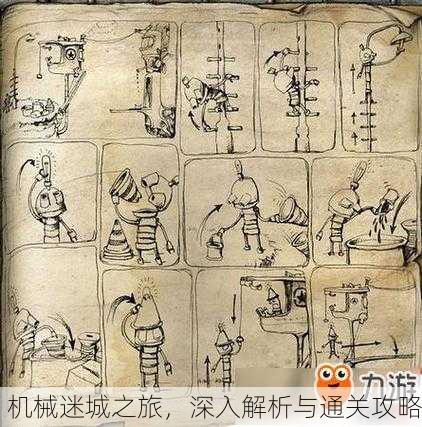 九游
机械迷城之旅，深入解析与通关攻略